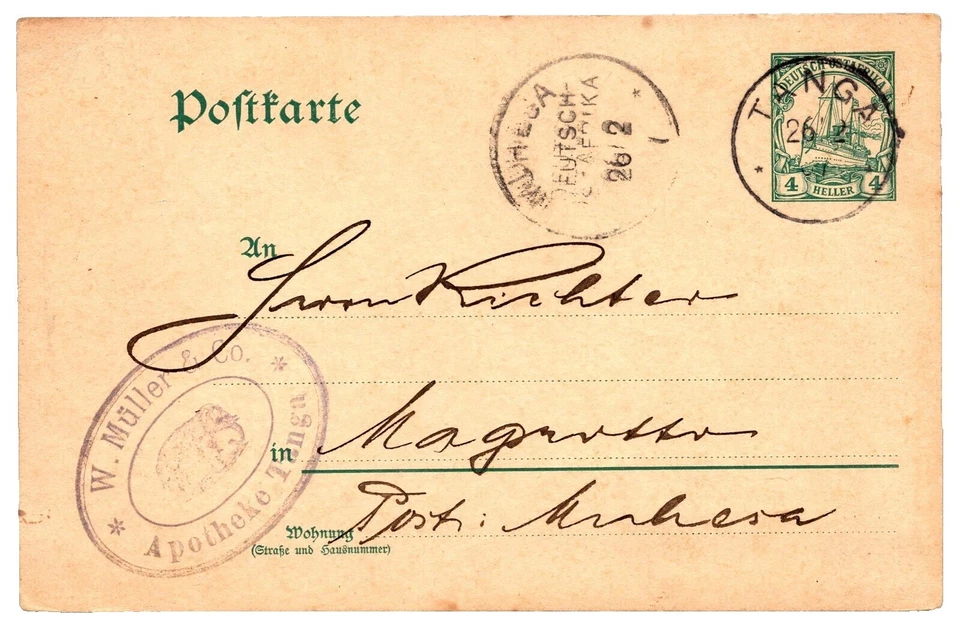 Poſtkarte
MUHESA
DEUTSCH-
OSTAFRIKA
26/2
DEUTSCH-OSTAFRIKA
TANGA
26 2
4 HELLER 4
An Herrn Richter
W. Müller & Co.
Apotheke Tanga
in Magrotto
Wohnung Post: Muhesa
(Straße und Hausnummer)